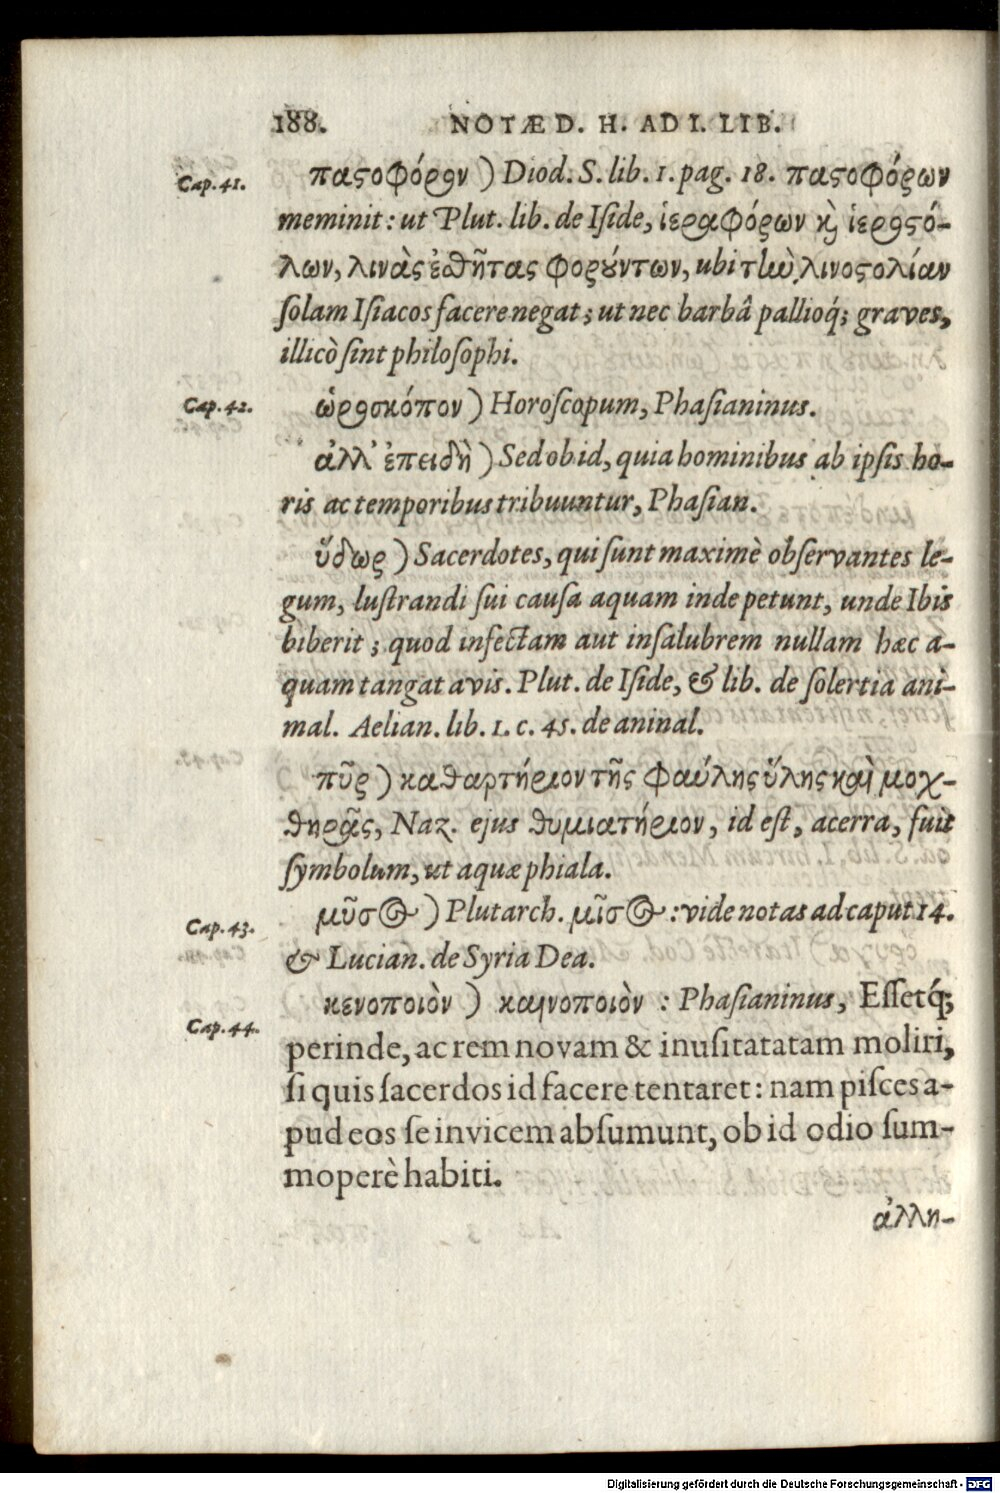 188. NOTÆ D. H. AD I. LIB.
Cap. 41. παϛοφόρον ) Diod. S. lib. 1. pag. 18. παϛοφόρων
meminit: ut Plut. lib. de Iſide, ἱεραφόρων κὶ ἱεροϛό-
λων, λινὰς ἐσθῆτας φορούντων, ubi τὴν λινοϛολίαν
ſolam Iſiacos facere negat; ut nec barbâ pallioq́; graves,
illicò ſint philoſophi.
Cap. 42. ὡροσκόπον ) Horoſcopum, Phaſianinus.
ἀλλ' ἐπειδὴ ) Sed ob id, quia hominibus ab ipſis ho-
ris ac temporibus tribuuntur, Phaſian.
ὕδωρ ) Sacerdotes, qui ſunt maximè obſervantes le-
gum, luſtrandi ſui cauſa aquam inde petunt, unde Ibis
biberit; quod infectam aut inſalubrem nullam hæc a-
quam tangat avis. Plut. de Iſide, & lib. de ſolertia ani-
mal. Aelian. lib. 1. c. 45. de aninal.
πῦρ ) καθαρτήριον τῆς φαύλης ὕλης καὶ μοχ-
θηρᾶς, Naz. ejus θυμιατήριον, id eſt, acerra, fuit
ſymbolum, ut aquæ phiala.
Cap. 43. μῦσος ) Plutarch. μῖσος: vide notas ad caput 14.
& Lucian. de Syria Dea.
Cap. 44. κενοποιὸν ) καινοποιὸν : Phaſianinus, Eſſetq́;
perinde, ac rem novam & inuſitatatam moliri,
ſi quis ſacerdos id facere tentaret: nam piſces a-
pud eos ſe invicem abſumunt, ob id odio ſum-
moperè habiti.
ἀλλη-
Digitalisierung gefördert durch die Deutsche Forschungsgemeinschaft - DFG